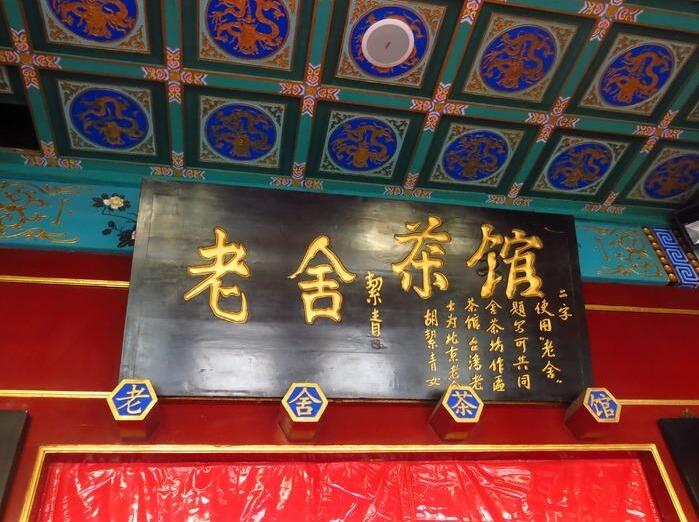 老舍茶馆
絜青
胡絜青女
士为北京老舍
茶馆台湾老
舍茶坊作匾
题写可共同
使用“老舍”
二字
老 舍 茶 馆